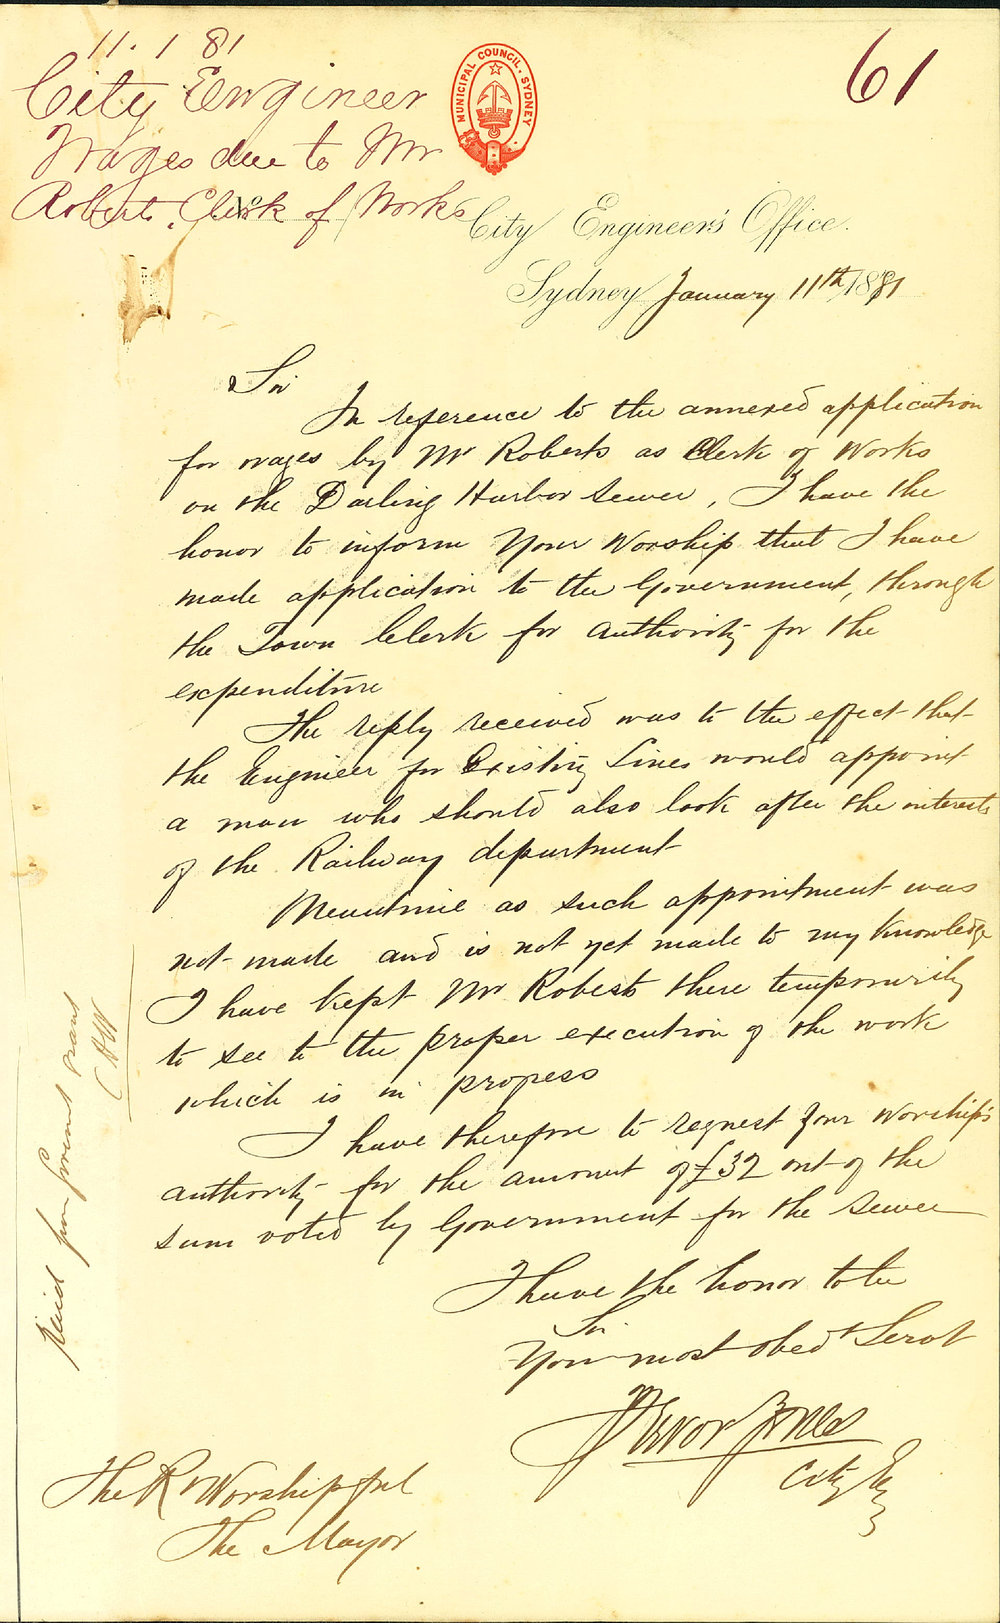 11. 1 81
61
City Engineer
Wages due to Mr
Roberts, Clerk of Works
MUNICIPAL COUNCIL. SYDNEY.
City Engineer's Office.
Sydney January 11th 1881
Sir
In reference to the annexed application
for wages by Mr Roberts as Clerk of Works
on the Darling Harbor Sewer, I have the
honor to inform Your Worship that I have
made application to the Government, through
the Town Clerk for authority for the
expenditure
The reply received was to the effect that
the Engineer for Existing Lines would appoint
a man who should also look after the interests
of the Railway department
Meantime as such appointment was
not made and is not yet made to my knowledge
I have kept Mr Roberts there temporarily
to see to the proper execution of the work
which is in progress
I have therefore to request Your Worship's
authority for the amount of £32 out of the
sum voted by Government for the Sewer
I have the honor to be
Sir
Your most obedt Servt
Trevor Jones
City Er
The Rt Worshipful
The Mayor
Paid from